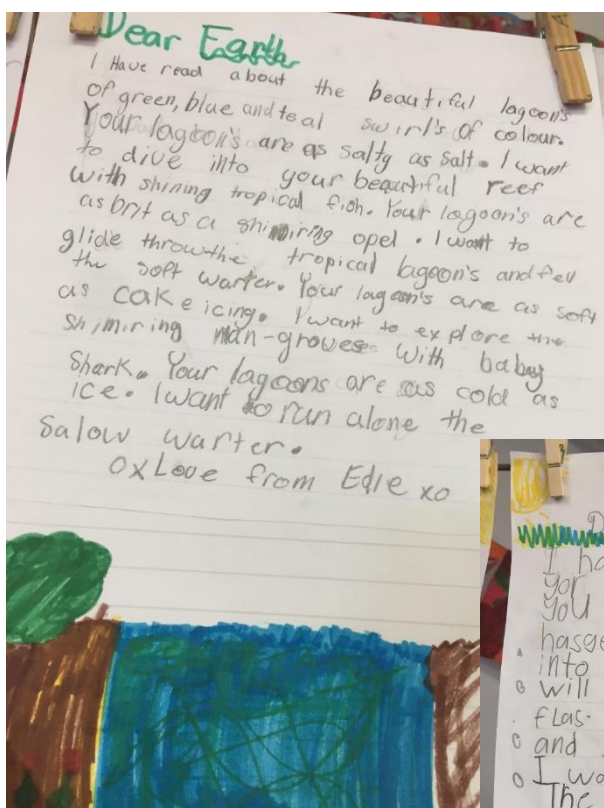 Dear Earth
I Have read about the beautiful lagoon's
of green, blue and teal swirl's of colour.
Your lagoon's are as salty as salt. I want
to dive into your beautiful reef
with shining tropical fish. Your lagoon's are
as brit as a shimiring opel. I want to
glide throw the tropical lagoon's and fel
the soft warter. Your lagoon's are as soft
as cake icing. I want to explore the
shimiring man-groves with baby
Shark. Your lagoons are as cold as
ice. I want to run alone the
salow warter.
OxLove from Edie xo
D
I ha
yor
you
hasge
into
will
flas.
and
I wa
The